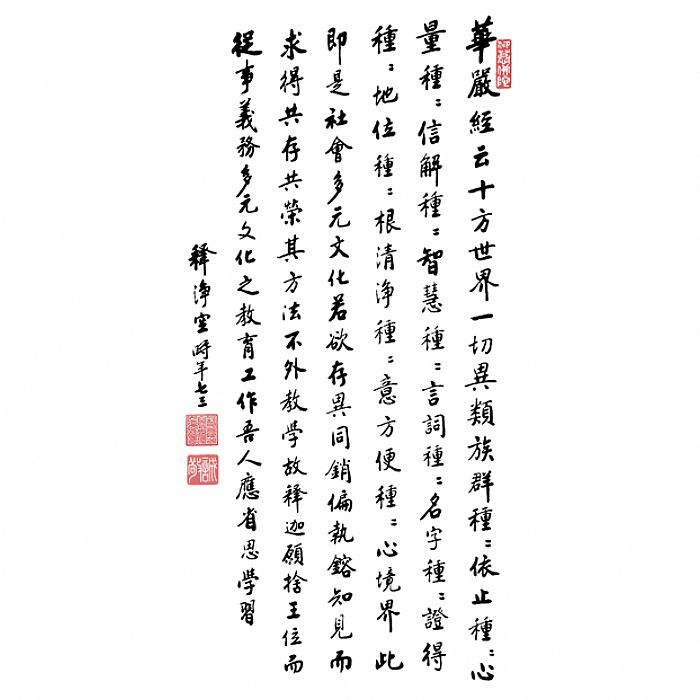 華嚴經云十方世界一切異類族群種〻依止種〻心
量種〻信解種〻智慧種〻言詞種〻名字種〻證得
種〻地位種〻根清淨種〻意方便種〻心境界此
即是社會多元文化若欲存異同銷偏執鎔知見而
求得共存共榮其方法不外教學故釋迦願捨王位而
從事義務多元文化之教育工作吾人應省思學習
釋淨空時年七三